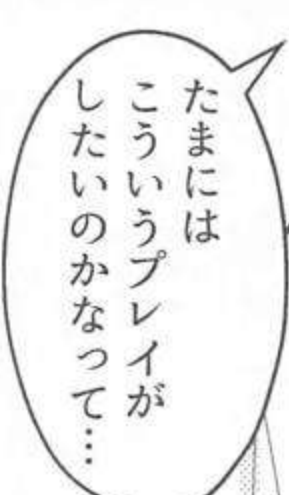 たまには
こういうプレイが
したいのかなって…